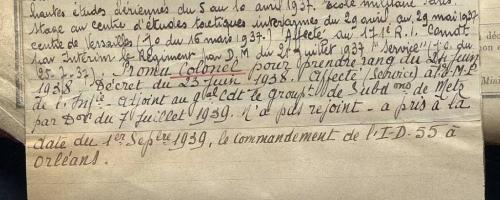 hautes études aériennes du 5 au 10 avril 1937. Ecole militaire Paris.
Stage au centre d'études tactiques interarmes du 29 avril au 29 mai 1937
centre de Versailles (J.O du 16 mars 1937.) Affecté au 17e R.I. Comdt
par Intérim le Régiment par D.M du 21 juillet 1937 "Service" (J.O. du
25-7-37). Promu Colonel pour prendre rang du 24 juin
1938. Décret du 23 juin 1938. Affecté (service) à l'E.M.P.
de l'Infie - adjoint au Gal Cdt le groupt de Subdons de Metz
par Don du 7 juillet 1939. n'a pas rejoint - a pris à la
date du 1er Sepbre 1939, le commandement de l'I-D-55 à
Orléans.
Mini